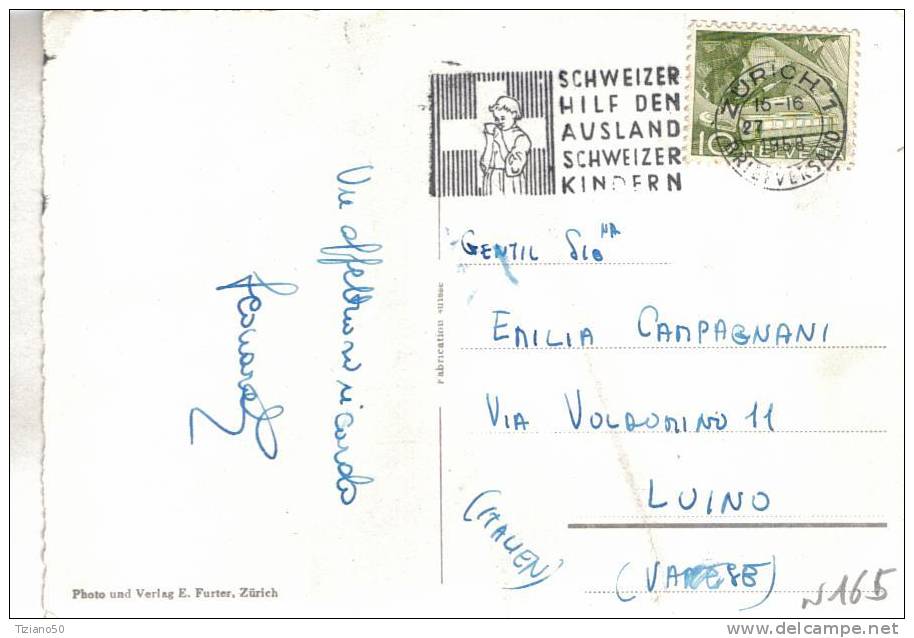 SCHWEIZER
HILF DEN
AUSLAND
SCHWEIZER
KINDERN
ZÜRICH 1
15-16
27
1958
BRIEFVERSAND
10 HELVETIA
GENTIL SIG NA
EMILIA CAMPAGNANI
VIA VOLDOMINO 11
LUINO
(VARESE)
(ITALIEN)
Un affettuoso ricordo
Fabrication suisse
Photo und Verlag E. Furter, Zürich
N165
Tiziano50
www.delcampe.net